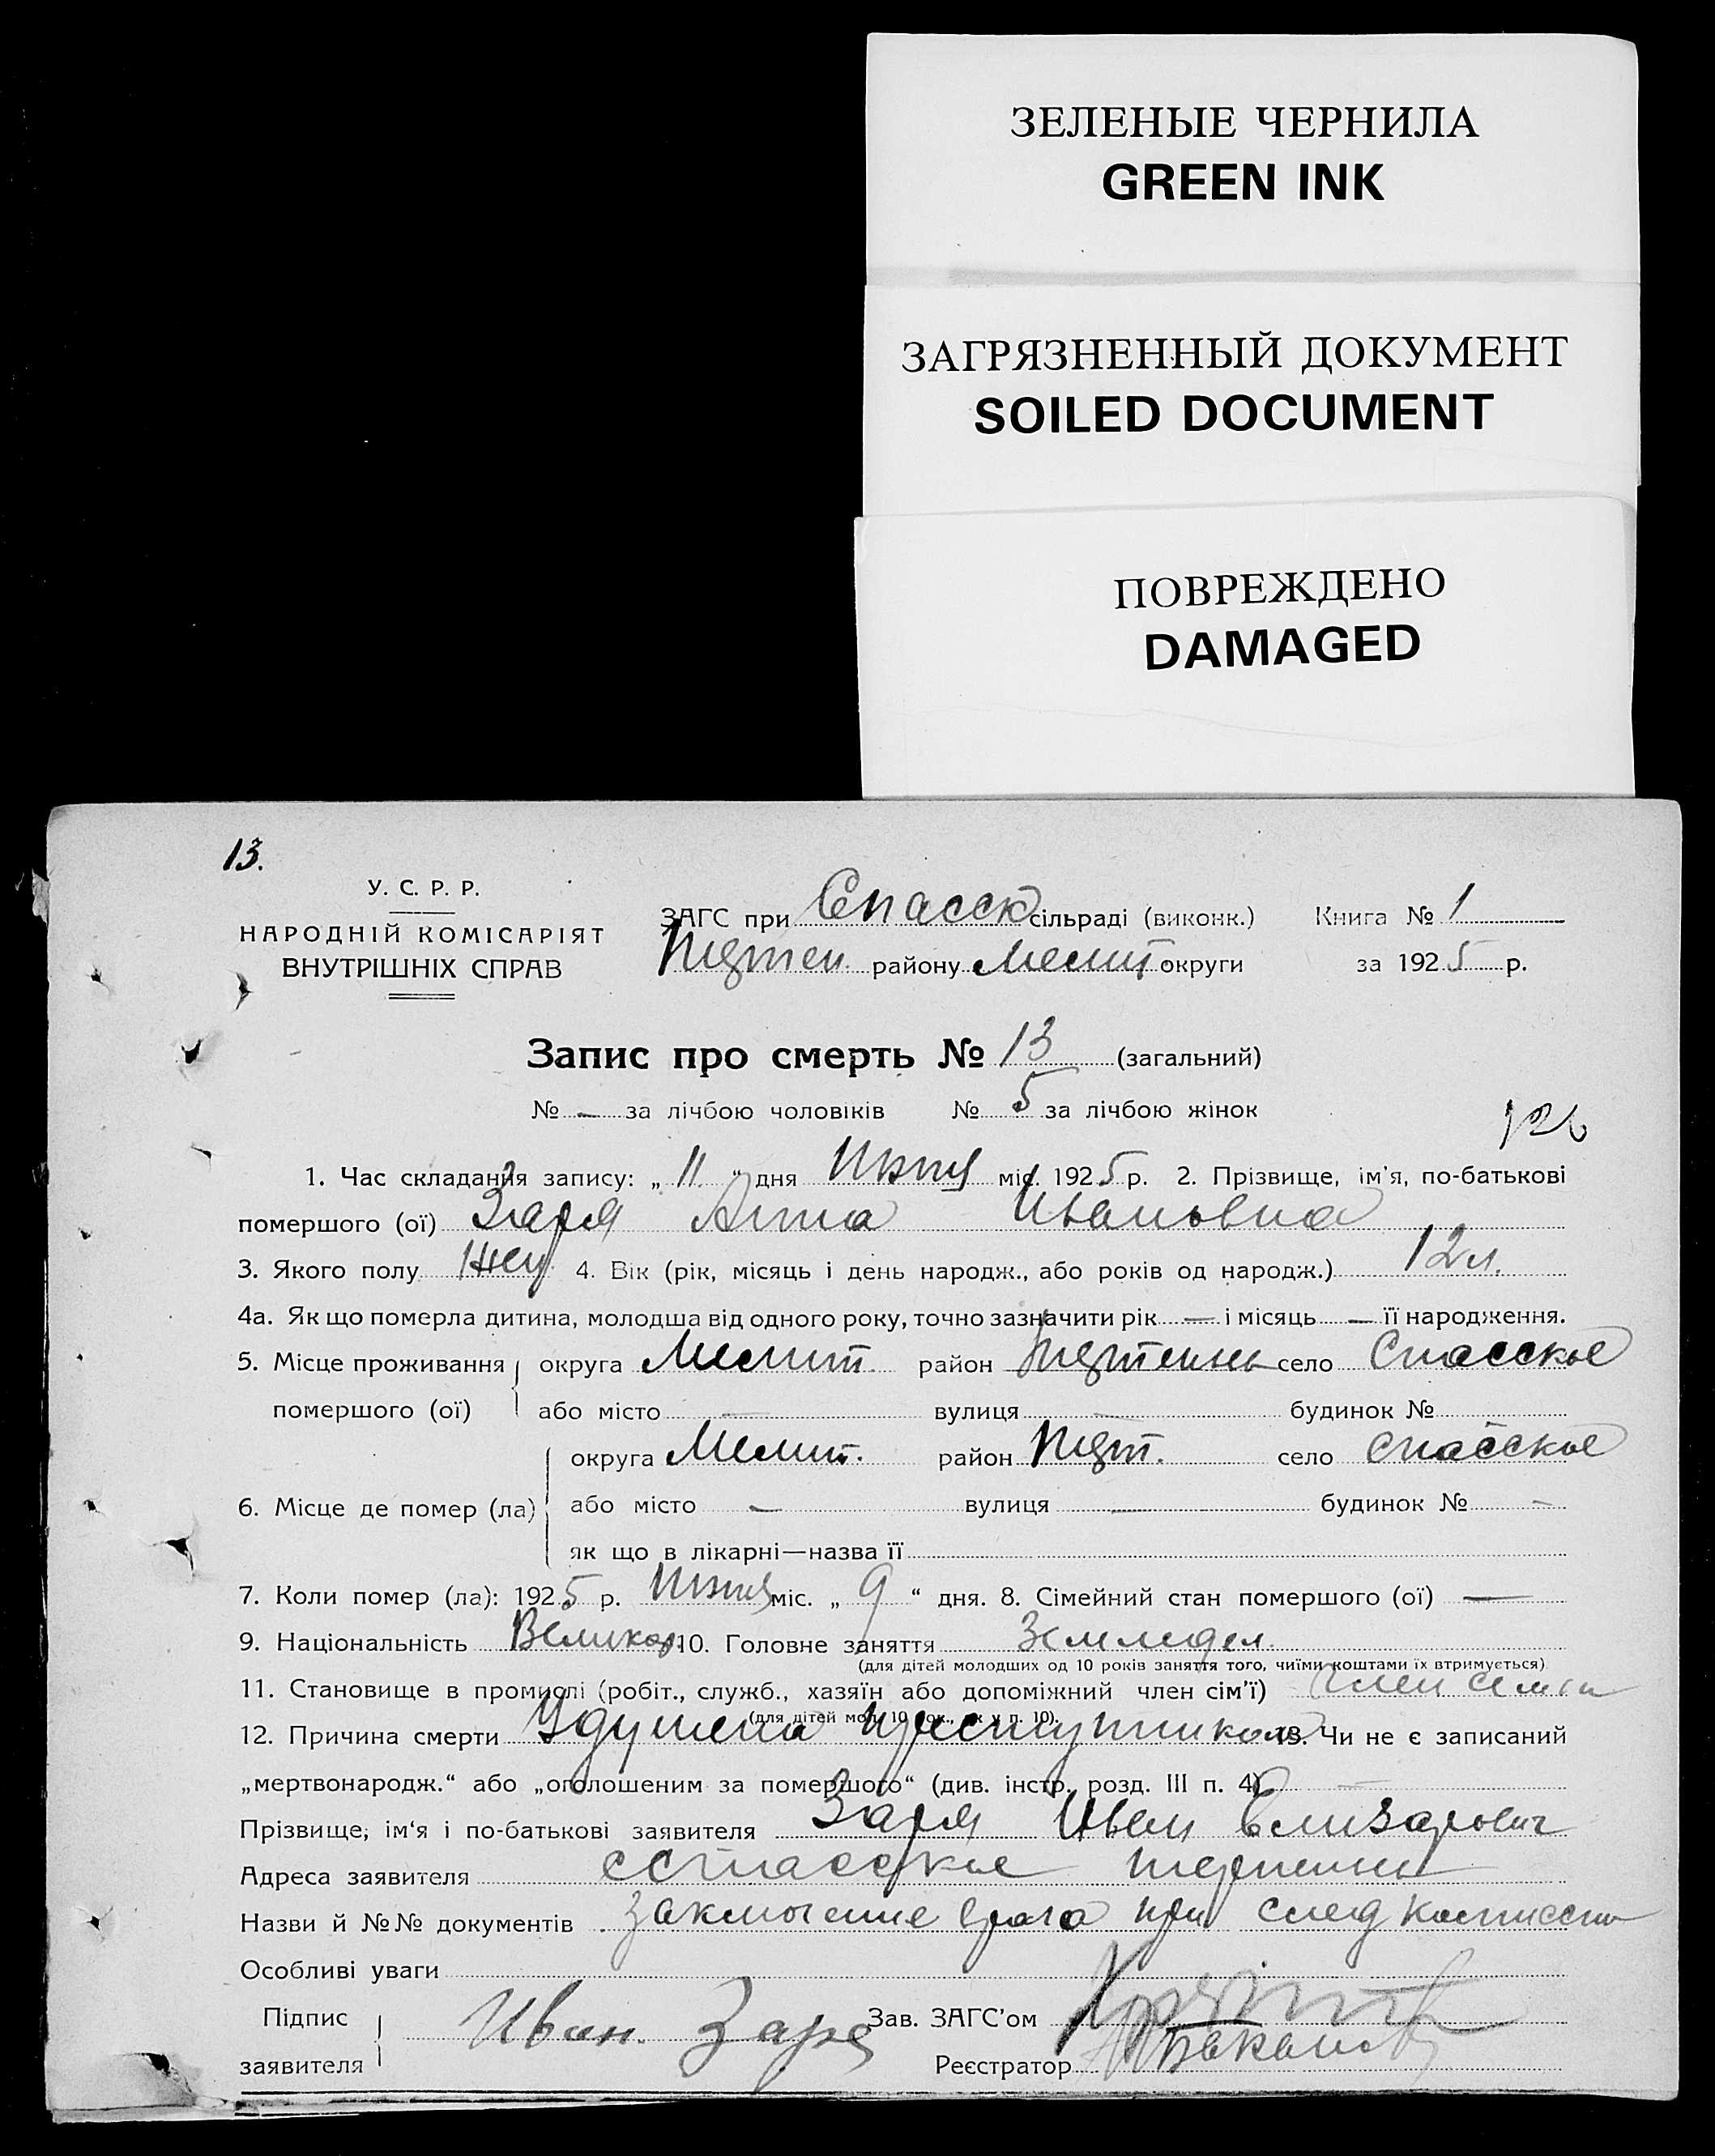 ЗЕЛЕНЫЕ ЧЕРНИЛА
GREEN INK
ЗАГРЯЗНЕННЫЙ ДОКУМЕНТ
SOILED DOCUMENT
ПОВРЕЖДЕНО
DAMAGED
13.
У. С. Р. Р.
НАРОДНІЙ КОМІСАРІЯТ
ВНУТРІШНІХ СПРАВ
ЗАГС при Спасск сільраді (виконк.) Книга № 1
району Мелит округи за 1925 р.
Запис про смерть № 13 (загальний)
№ — за лічбою чоловіків № 5 за лічбою жінок
126
1. Час складання запису: „ 11 “ дня Июня міс. 1925 р. 2. Прізвище, ім'я, по-батькові
помершого (ої) Заря Анна Ивановна
3. Якого полу Жен 4. Вік (рік, місяць і день народж., або років од народж.) 12 л.
4а. Як що померла дитина, молодша від одного року, точно зазначити рік — і місяць — її народження.
5. Місце проживання округа Мелит район село Спасское
помершого (ої) або місто — вулиця — будинок №
округа Мелит. район село Спасское
6. Місце де помер (ла) або місто — вулиця — будинок № —
як що в лікарні—назва її
7. Коли помер (ла): 1925 р. Июня міс. „ 9 “ дня. 8. Сімейний стан помершого (ої) —
9. Національність Великор. 10. Головне заняття Земледел.
(для дітей молодших од 10 років заняття того, чиїми коштами їх втримується)
11. Становище в промислі (робіт., служб., хазяїн або допоміжний член сім'ї) член семьи
(для дітей мол. 10 рок., як у п. 10).
12. Причина смерти Удушена преступником 13. Чи не є записаний
„мертвонародж.“ або „оголошеним за помершого“ (див. інстр. розд. III п. 4) —
Прізвище, ім'я і по-батькові заявителя Заря Иван Елизарович
Адреса заявителя с Спасское
Назви й №№ документів заключение врача при след комиссии
Особливі уваги
Підпис Иван Заря Зав. ЗАГС'ом
заявителя Реєстратор